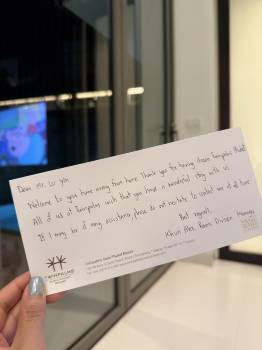 Dear Mr. Lu Yan
Welcome to your home away from home. Thank you for having chosen Twinpalms Phuket
All of us at Twinpalms wish that you have a wonderful stay with us
If I may be of any assistance please do not hesitate to contact me at all time
Best regards,
Khun Alex, Rooms Division Manager
TWINPALMS